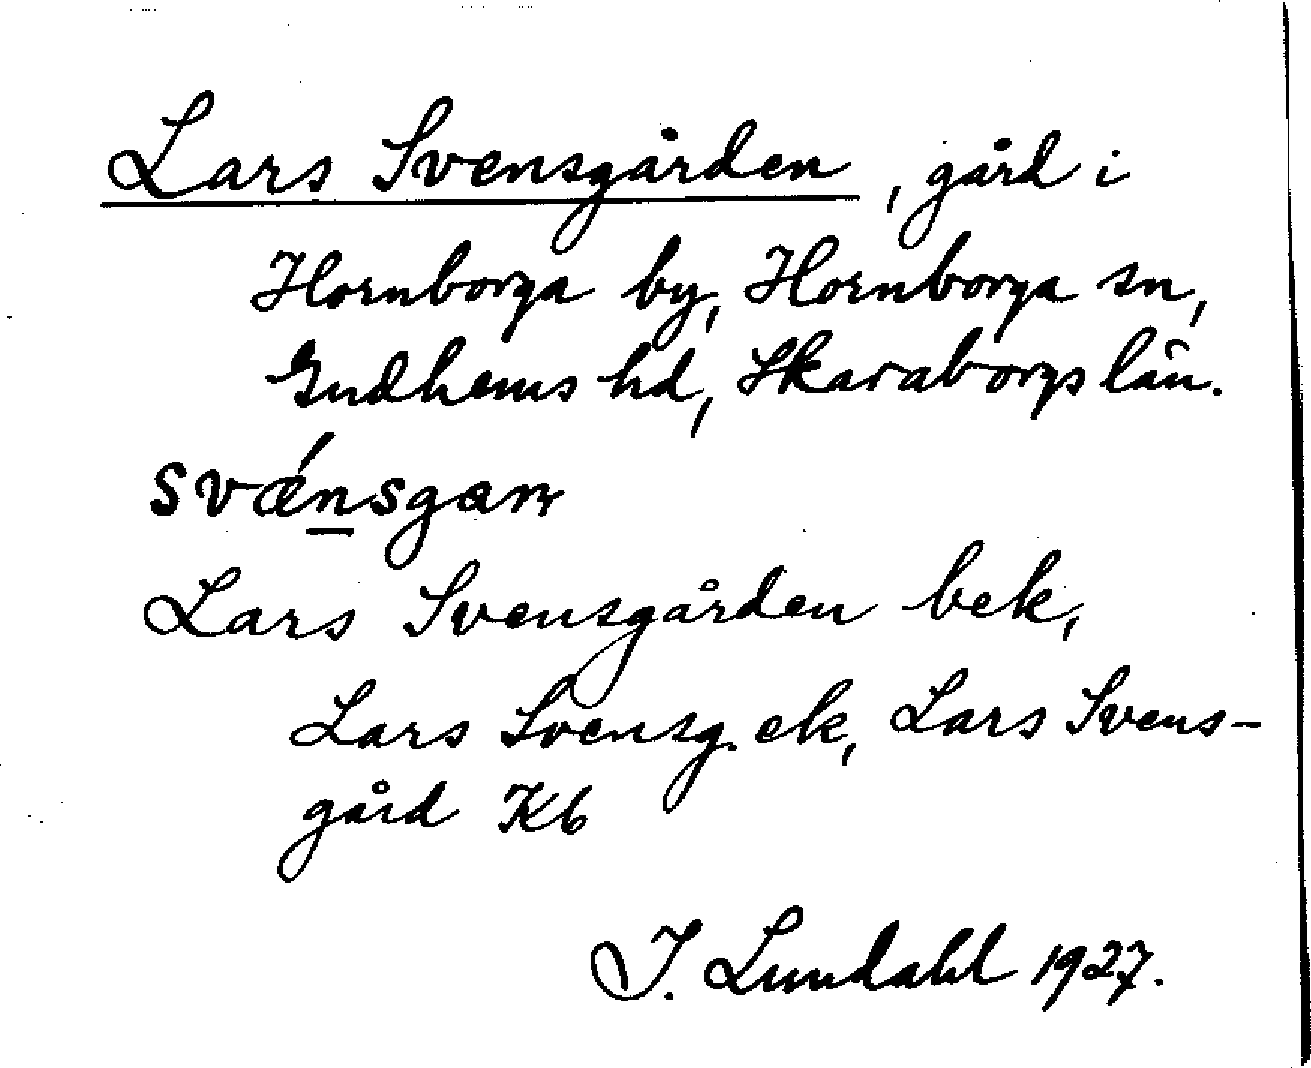 Lars Svensgården, gård i
Hornborga by, Hornborga sn,
Gudhems hd, Skaraborgs län.
svǽnsgan
Lars Svensgården bek,
Lars Svensg. ek, Lars Svens-
gård Kb
I. Lundahl 1927.